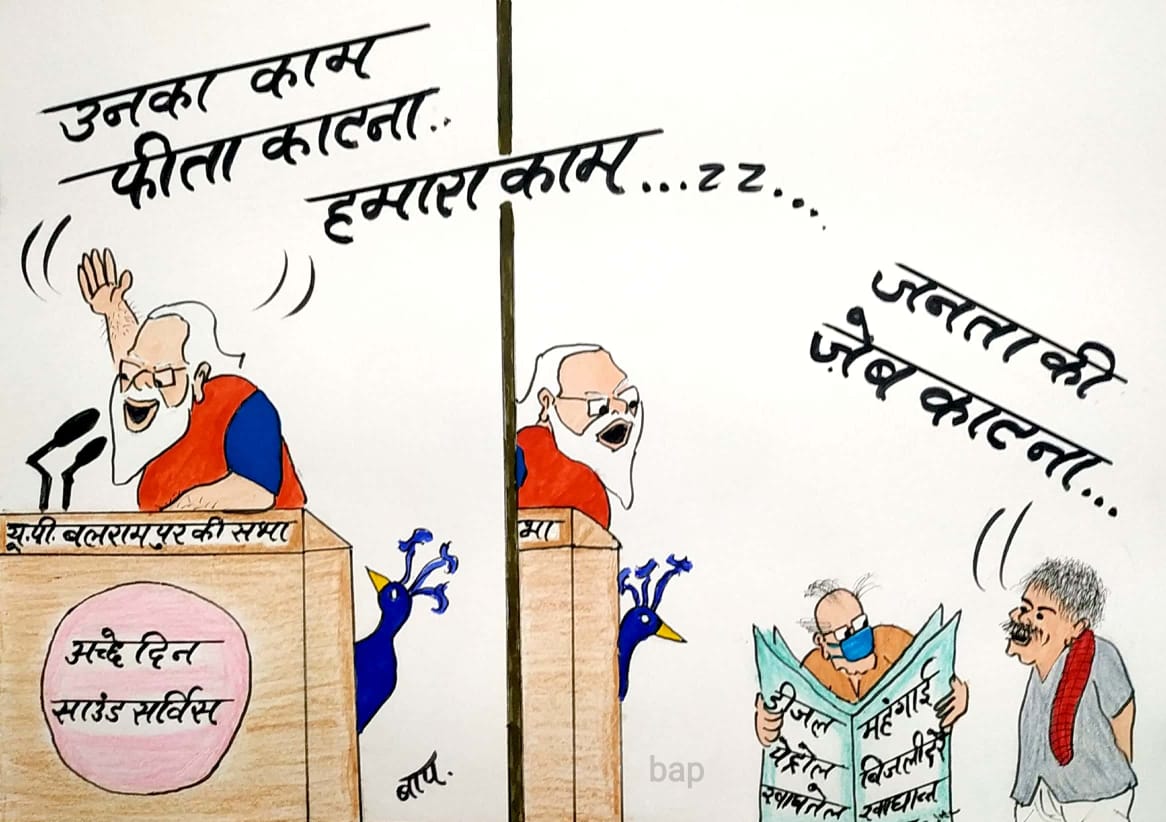 उनका काम
फीता काटना..
हमारा काम...zz...
जनता की
ज़ेब काटना...
यू.पी. बलरामपुर की सभा
भा
अच्छे दिन
साउंड सर्विस
डीजल
पेट्रोल
खाद्यतेल
महंगाई
बिजली दरें
खाद्यान्न
बाप.
bap